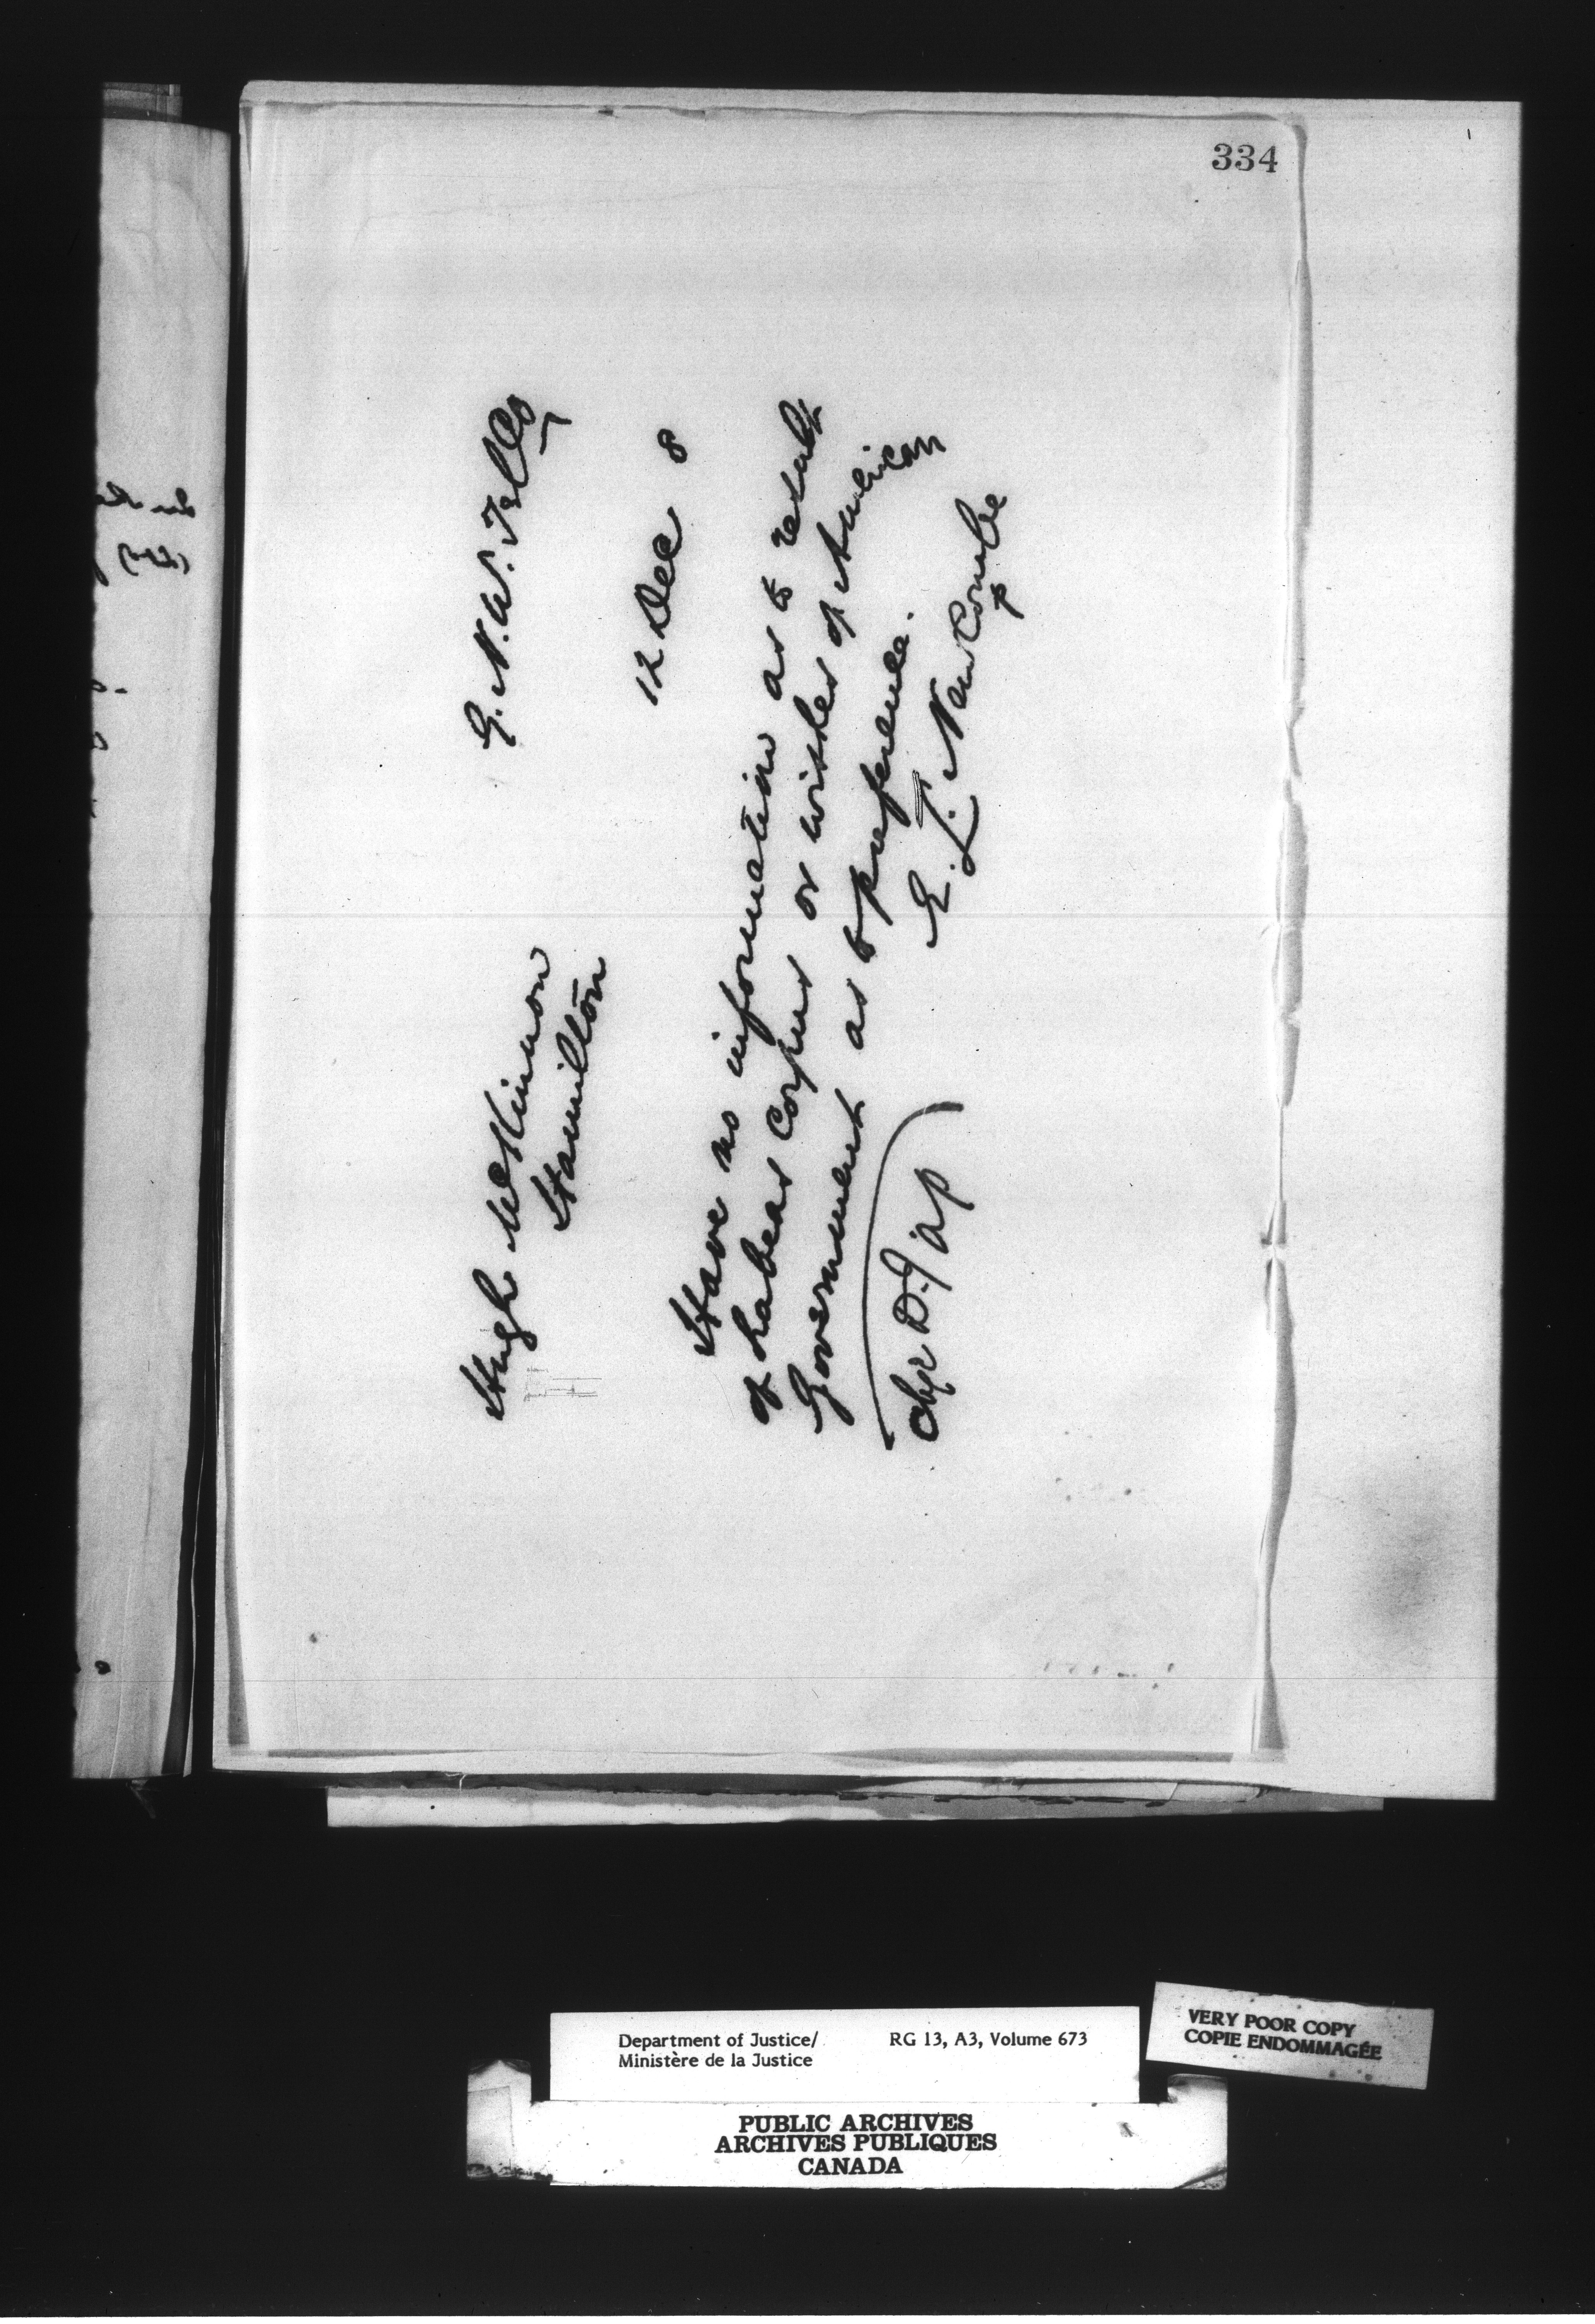 334
G. N. W. Tel Co
Hugh McKinnon
Hamilton
12 Dec 8
Have no information as to result
of habeas corpus or wishes of American
Government as to preference.
E. L. Newcombe
Chge D. J. a/p
Department of Justice/ RG 13, A3, Volume 673
Ministère de la Justice
VERY POOR COPY
COPIE ENDOMMAGÉE
PUBLIC ARCHIVES
ARCHIVES PUBLIQUES
CANADA